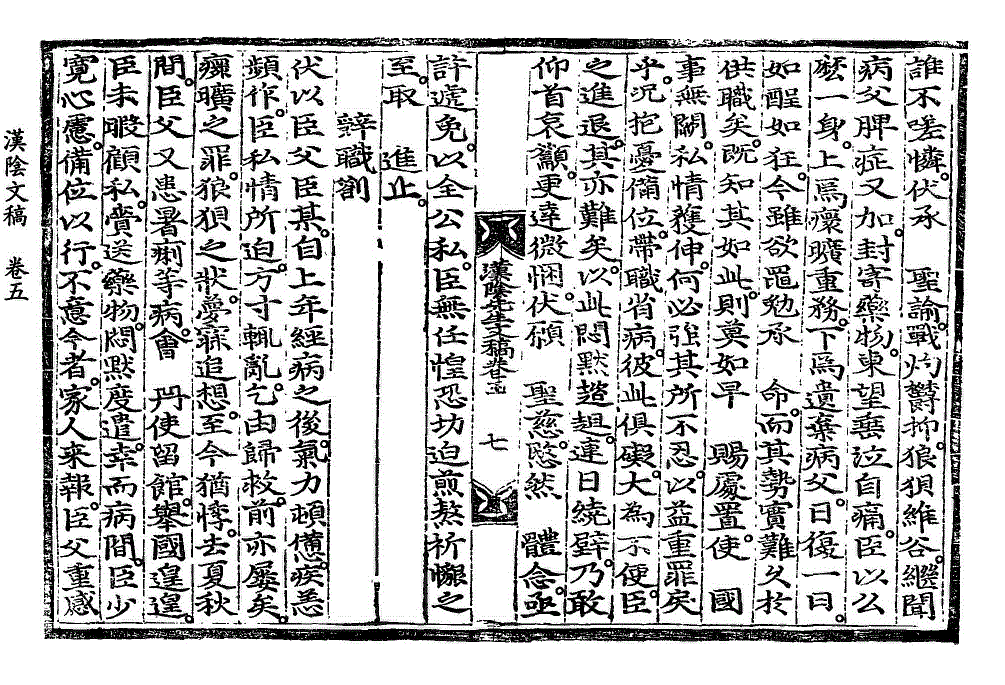 誰不嗟憐。伏承　聖諭。戰灼鬱抑。狼狽維谷。繼聞
病父脾症又加。封寄藥物。東望垂泣自痛。臣以公
麽一身。上爲瘝曠重務。下爲遺棄病父。日復一日
如酲如狂。今雖欲黽勉承　命。而其勢實難久於
供職矣。旣知其如此。則莫如早　賜處置。使　國
事無闕。私情獲伸。何必強其所不忍。以益重罪戾
乎。况抱憂備位。帶職省病。彼此俱礙。大爲不便。臣
之進退。其亦難矣。以此悶默趑趄。連日繞壁。乃敢
仰首哀籲。更達微悃。伏願　聖慈愍然　體念。亟
漢陰先生文稿卷之五　七
許遞免。以全公私。臣無任惶恐功迫煎熬祈懇之
至。取　進止。
辭職箚
伏以臣父臣某。自上年經病之後。氣力頓憊。疾恙
頻作。臣私情所迫。方寸輒亂。乞由歸救。前亦屢矣。
瘝曠之罪。狼狽之狀。夢寐追想。至今猶悸。去夏秋
間。臣父又患暑痢等病。會　冊使留館。擧國遑遑。
臣未暇顧私。賷送藥物。悶默度遣。幸而病間。臣少
寬心慮。備位以行。不意今者。家人來報。臣父重感
漢陰文稿　卷五